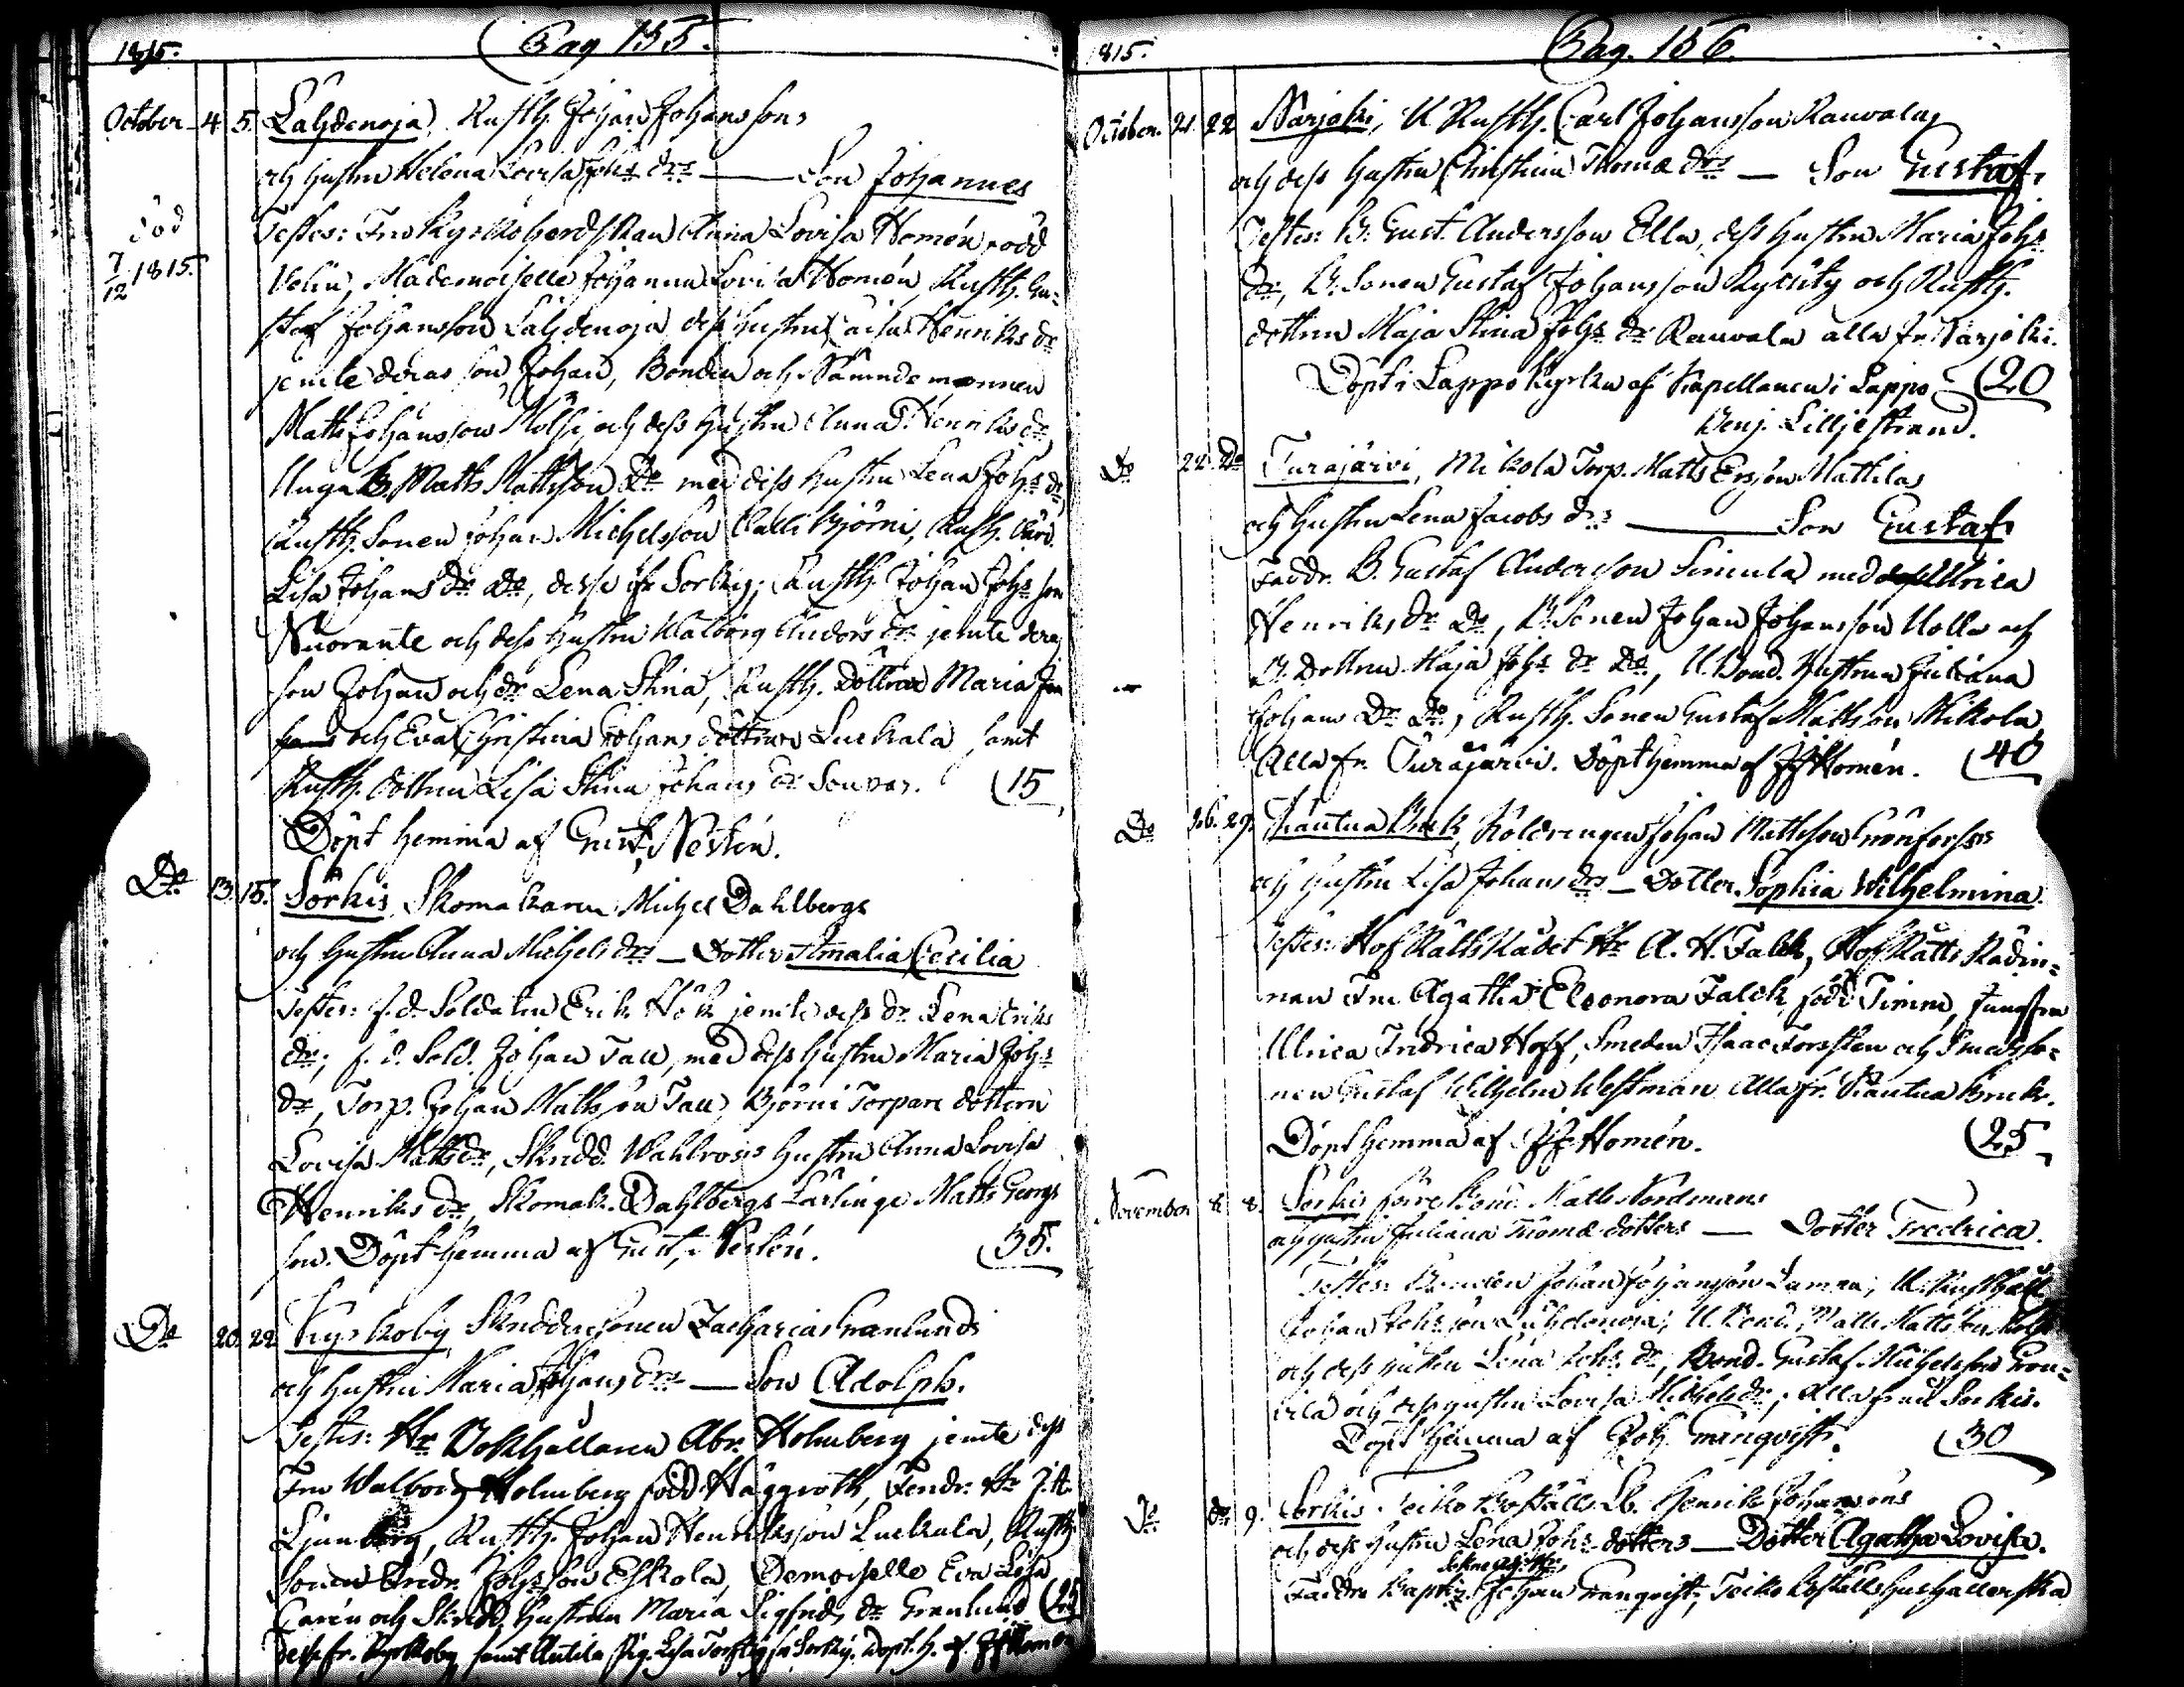 1815. Pag 155.
October 4. 5. Lahdenoja, Rusth. Johan Johanssons
och hustru Helena Lovisa Johs drs — Son Johannes
död
7/12 1815.
Testes: Fru Kyrkoherdskan Anna Lovisa Homén född
Mademoiselle Johanna Lovisa Homén, Rusth. Gu=
staf Johansson Lahdenoja dess hustru Caisa Henriks dr
jemte deras son Johan, Bonden och Nämndemannen
Matts Johansson och dess hustru Anna Henriks dr
Unga B. Matts Mattsson Do med dess hustru Lena Johs dr
Rusth. Sonen Johan Michelsson Björni, Rusth.
Lisa Johans dr Do, desse ifr Sorkis; Rusth. Johan Johs son
Nuorante och dess hustru Walborg Anders dr jemte deras
son Johan och dr Lena Stina, Rusth. Döttrar Maria
och Eva Christina Johans döttrar Luckala samt
Rusth. dottren Lisa Stina Johans dr Souvas. 15
Döpt hemma af Gust. Nestén.
Do 13. 15. Sorkis Skomakaren Michel Dahlbergs
och hustru Anna Michels drs — Dotter Amalia Cecilia
Testes: f.d. Soldaten Erik Hök jemte dess dr Lena Eriks
dr; f.d. Sold. Johan Tall, med dess hustru Maria Johs
dr, Torp. Johan Mattsson Tall, Björni Torpare dottren
Lovisa Matts dr, Skrädd. Wahlroos hustru Anna Lovisa
Henriks dr, Skomak. Dahlbergs Lärlinge Matts Georgs
son. Döpt hemma af Gust. Nestén. 35.
Do 20. 22 Kyrkoby Skräddaresonen Zacharias Granlunds
och hustru Maria Johans drs — Son Adolph.
Testes: Hr Bokhållaren Abr. Holmberg jemte dess
Fru Walborg Holmberg född Häggroth, Fendr. Hr J. A.
Ljunberg, Rusth. Johan Henriksson Luckala, Rusth.
Sonen Fredr. Johsson Eskola, Demoiselle Eva Lisa
Carén och Skrädd. hustrun Maria Sigfrids dr Granlund 25
desse fr. Kyrkoby samt Antila Pig. Lisa fr Sorkis. Döpt. h. af JJ Homén
1815. Pag. 156.
October. 21. 22 Narjoki, U Rusth. Carl Johansson Rauvalas
och dess hustru Christina Thomæ drs — Son Gustaf.
Testes: B. Gust. Andersson Ella, dess hustru Maria Johs
dr, B. Sonen Gustaf Johansson Kylsity och Rusth.
dottren Maja Stina Johs dr Rauvala alla fr Narjoki.
Döpt i Lappo Kyrka af Kapellanen i Lappo 20
Benj. Lilljestrand.
Do 22. Do Turajärvi, Mikola Torp. Matts Ersson Mattilas
och hustru Lena Jacobs drs — Son Gustaf.
Faddr. B. Gustaf Andersson Simula med Ulrica
Henriks dr Do, B. Sonen Johan Johansson Uolla och
B. Dottren Maja Johs dr Do, U. Bond. hustrun Juliana
Johans Dr Do, Rusth. Sonen Gustaf Mattsson Mikola
Alla fr. Turajärvi. Döpt hemma af JJ Homén. 40
Do 26. 29. Kautua Bruk, Koldrängen Johan Mattsson Grönforss
och hustru Lisa Johans drs — Dotter Sophia Wilhelmina.
Testes: Hof Rätts Rådet Hr A. H. Falck, Hof Rätts Rådin=
nan Fru Agatha Eleonora Falck, född Timm, Jungfru
Ulrica Fredrica Hoff, Smeden Isaac Forssten och Smedsso=
nen Gustaf Wilhelm Westman Alla fr. Kautua Bruk.
Döpt hemma af JJ Homén. 25
November 6 8. Sorkis förre Bond. Matts Nordmans
och hustru Juliana Thomæ dotters — Dotter Fredrica.
Testes: Bonden Johan Johansson Lamma, U. Rusthåll
Johan Johsson Lahdenoja, U. Bond. Matts Mattsson
och dess hustru Lena Johs. dr, Bond. Gustaf Michelsson
och dess hustru Lovisa Michels dr, Alla från Sorkis.
Döpt hemma af Joh. Tranqvist. 30
Do do 9. Sorkis Teiko Boställs Lb. Henrik Johanssons
och dess hustru Lena Johs dotters — Dotter Agatha Lovisa.
Faddr. Johan Tranqvist, Teiko Boställs hushållerska